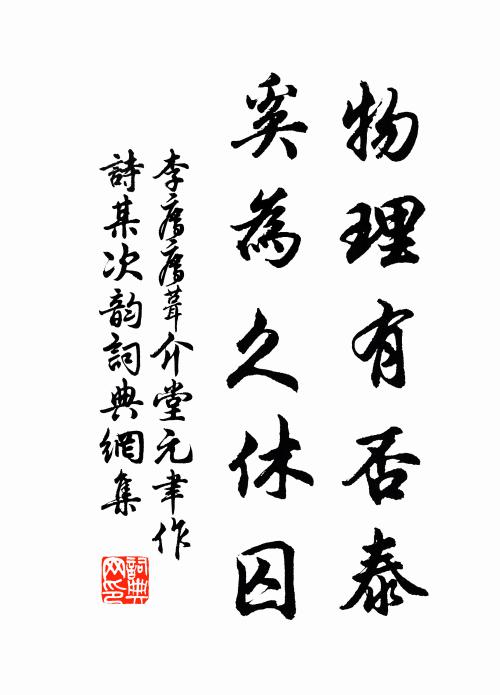 物理有否泰
奚為久休囚
李葺介堂元聿作
詩某次韵詞典網集
詞典网印